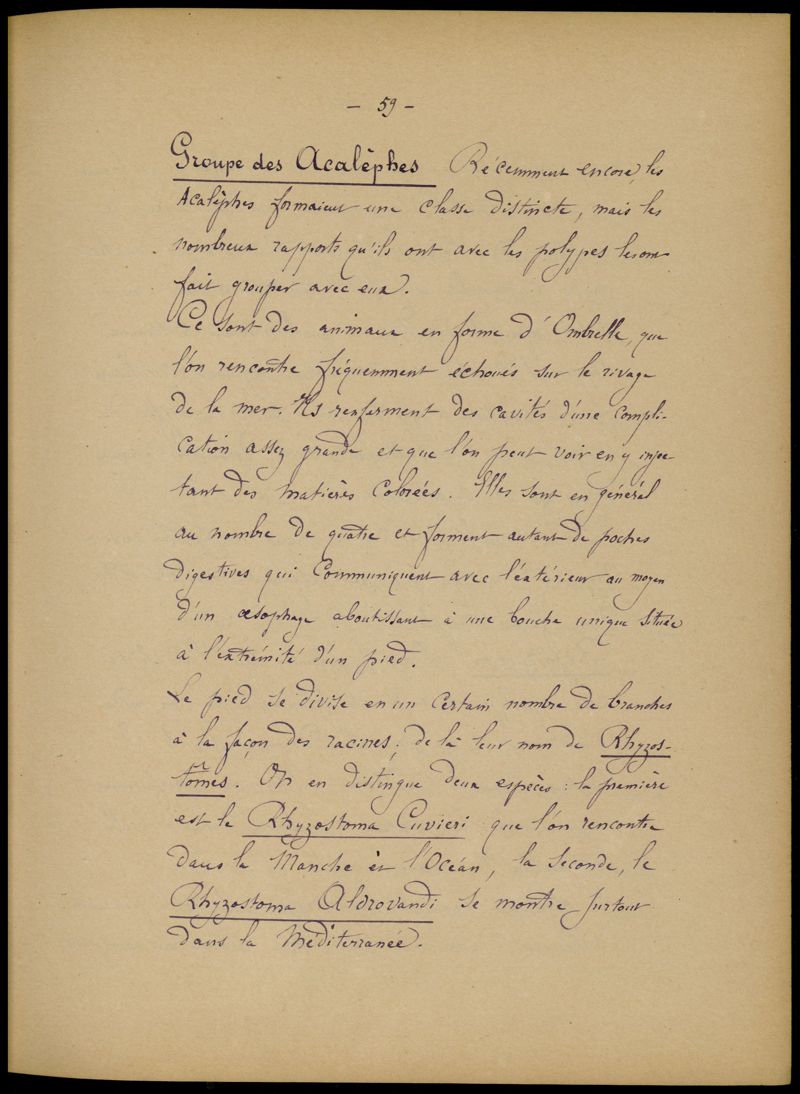 - 59 -
Groupe des Acalèphes Récemment encore, les
Acalèphes formaient une classe distincte, mais les
nombreux rapports qu'ils ont avec les polypes les ont
fait grouper avec eux.
Ce sont des animaux en forme d'Ombrelle, que
l'on rencontre fréquemment échoués sur le rivage
de la mer. Ils renferment des cavités d'une compli-
cation assez grande et que l'on peut voir en y injec-
tant des matières colorées. Elles sont en général
au nombre de quatre et forment autant de poches
digestives qui communiquent avec l'extérieur au moyen
d'un œsophage aboutissant à une bouche unique située
à l'extrémité d'un pied.
Le pied se divise en un certain nombre de branches
à la façon des racines; de là leur nom de Rhyzos-
tômes. On en distingue deux espèces: la première
est le Rhyzostoma Cuvieri que l'on rencontre
dans la Manche et l'Océan, la seconde, le
Rhyzostoma Aldrovandi se montre surtout
dans la Méditerranée.